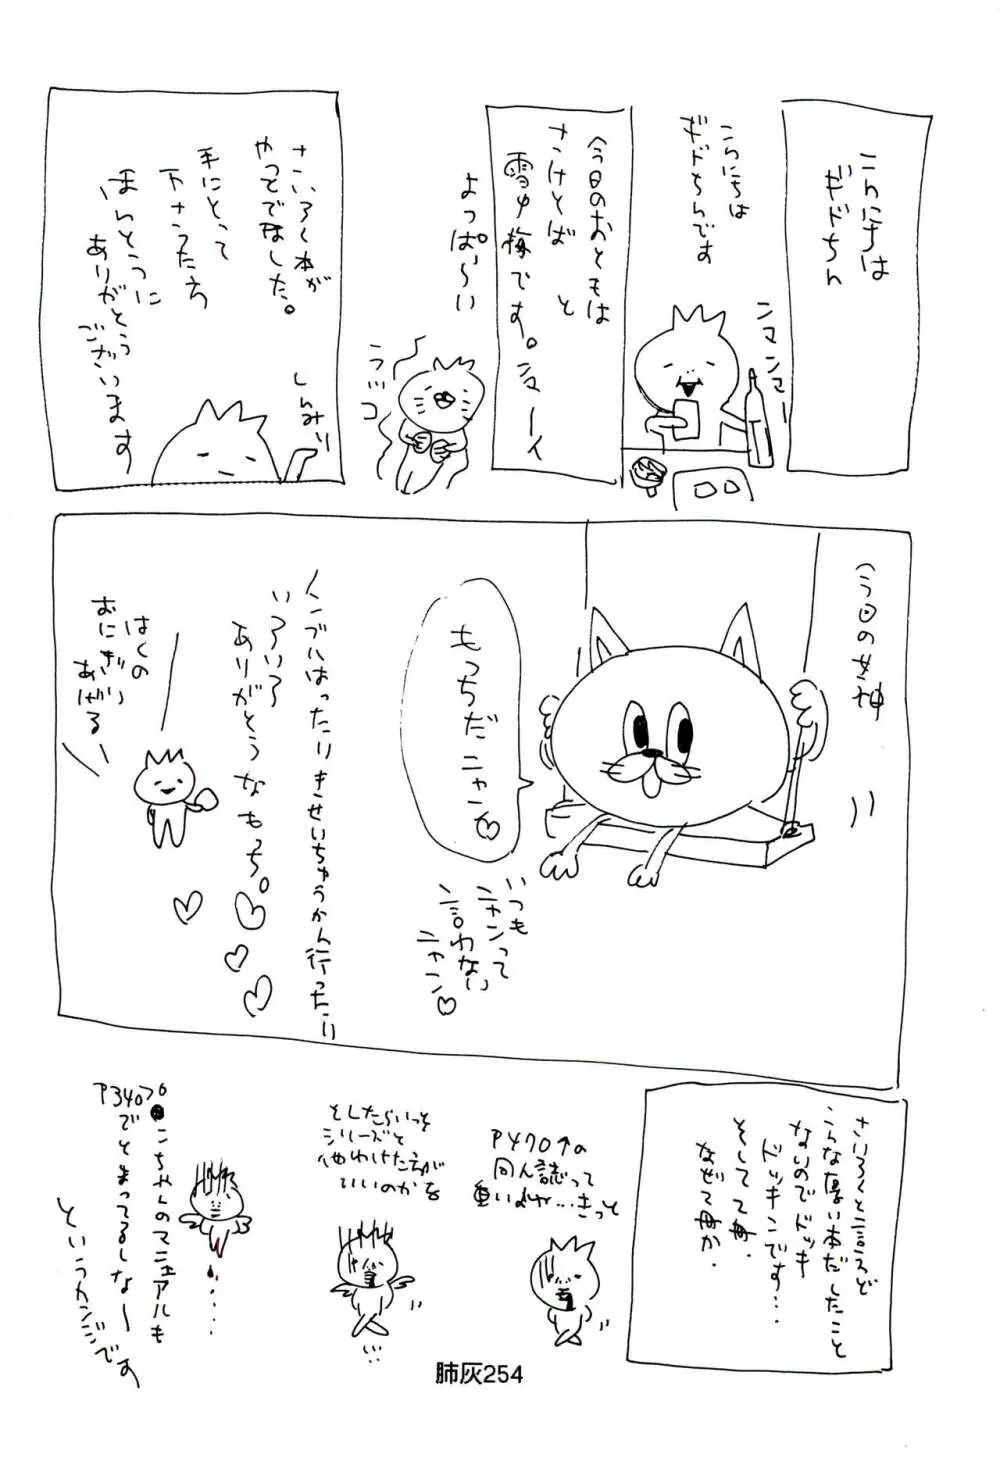 こんにちは
ギドちん
こんにちは
ギドちんです
ンマンマー
今日のおともは
さけとばと
雪中梅です。ンマーイ
よっぱらい
ウッコ
さいろく本が
やっとでました。
手にとって
下さったた方
ほんとうに
ありがとう
ございます
しんみり
今日の女神
もっちだニャン♡
いつも
ニャンって
言わない
ニャン♡
いろいろ
ありがとうなもっち。
はくの
おにぎり
あげる
さいろくと言えど
こんな厚い本だしたこと
ないのでドッキ
ドッキンです…
そして再。
なぜて再か。
P470↑の
同人誌って
重いよね…きっと
としたらいっそ
シリーズと
他わけた方が
いいのかな
こちゃんのマニュアルも
P340プ
でとまってるしな〜
というカンジです
肺灰254